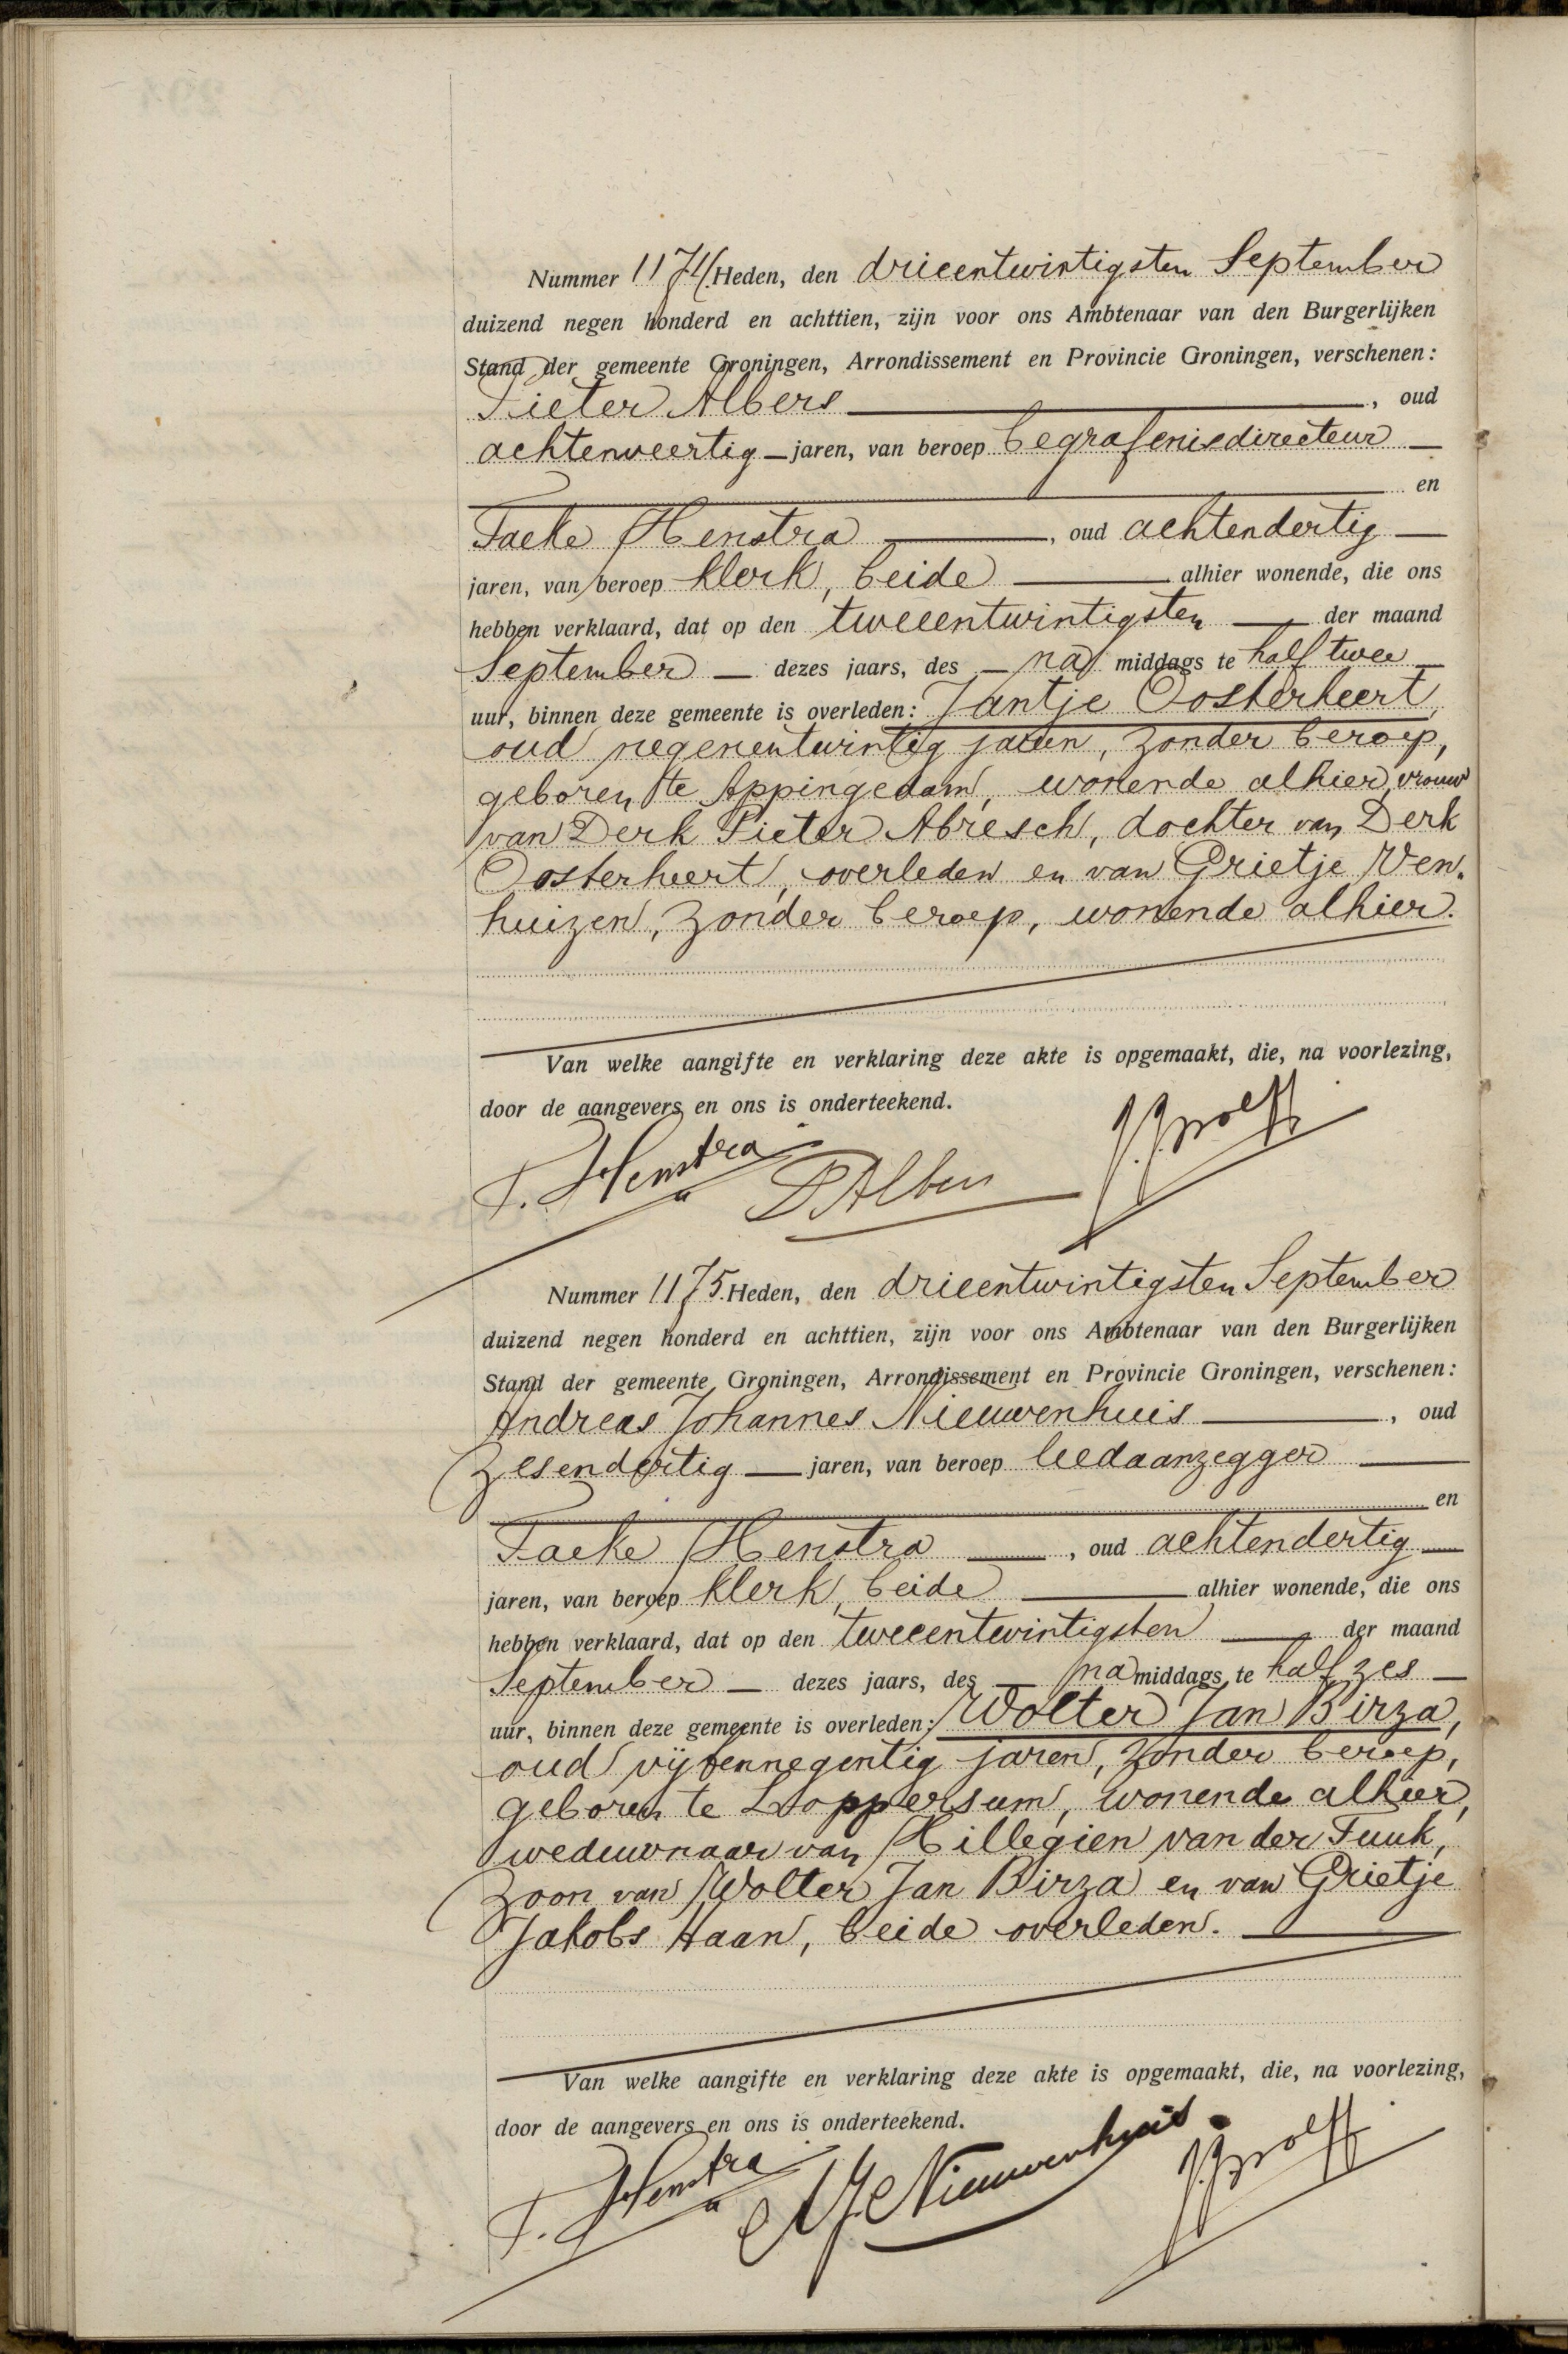 Nummer 1174. Heden, den drieentwintigsten September
duizend negen honderd en achttien, zijn voor ons Ambtenaar van den Burgerlijken
Stand der gemeente Groningen, Arrondissement en Provincie Groningen, verschenen:
Pieter Albers, oud
achtenveertig jaren, van beroep begrafenisdirecteur
en
Taeke Henstra, oud achtendertig
jaren, van beroep klerk, beide alhier wonende, die ons
hebben verklaard, dat op den tweeentwintigsten der maand
September dezes jaars, des na middags te half twee
uur, binnen deze gemeente is overleden: Jantje Oosterheert,
oud negenentwintig jaren, zonder beroep,
geboren te Appingedam, wonende alhier, vrouw
van Derk Pieter Abresch, dochter van Derk
Oosterheert, overleden en van Grietje Wen-
huizen, zonder beroep, wonende alhier.
Van welke aangifte en verklaring deze akte is opgemaakt, die, na voorlezing,
door de aangevers en ons is onderteekend.
T. Henstra PAlbers
Nummer 1175. Heden, den drieentwintigsten September
duizend negen honderd en achttien, zijn voor ons Ambtenaar van den Burgerlijken
Stand der gemeente Groningen, Arrondissement en Provincie Groningen, verschenen:
Andreas Johannes Nieuwenhuis, oud
zesendertig jaren, van beroep leedaanzegger
en
Taeke Henstra, oud achtendertig
jaren, van beroep klerk, beide alhier wonende, die ons
hebben verklaard, dat op den tweeentwintigsten der maand
September dezes jaars, des na middags te half zes
uur, binnen deze gemeente is overleden: Wolter Jan Birza,
oud vijfennegentig jaren, zonder beroep,
geboren te Loppersum, wonende alhier,
weduwnaar van Hillegien van der Tuuk,
zoon van Wolter Jan Birza en van Grietje
Jakobs Haan, beide overleden.
Van welke aangifte en verklaring deze akte is opgemaakt, die, na voorlezing,
door de aangevers en ons is onderteekend.
T. Henstra AJ Nieuwenhuis.